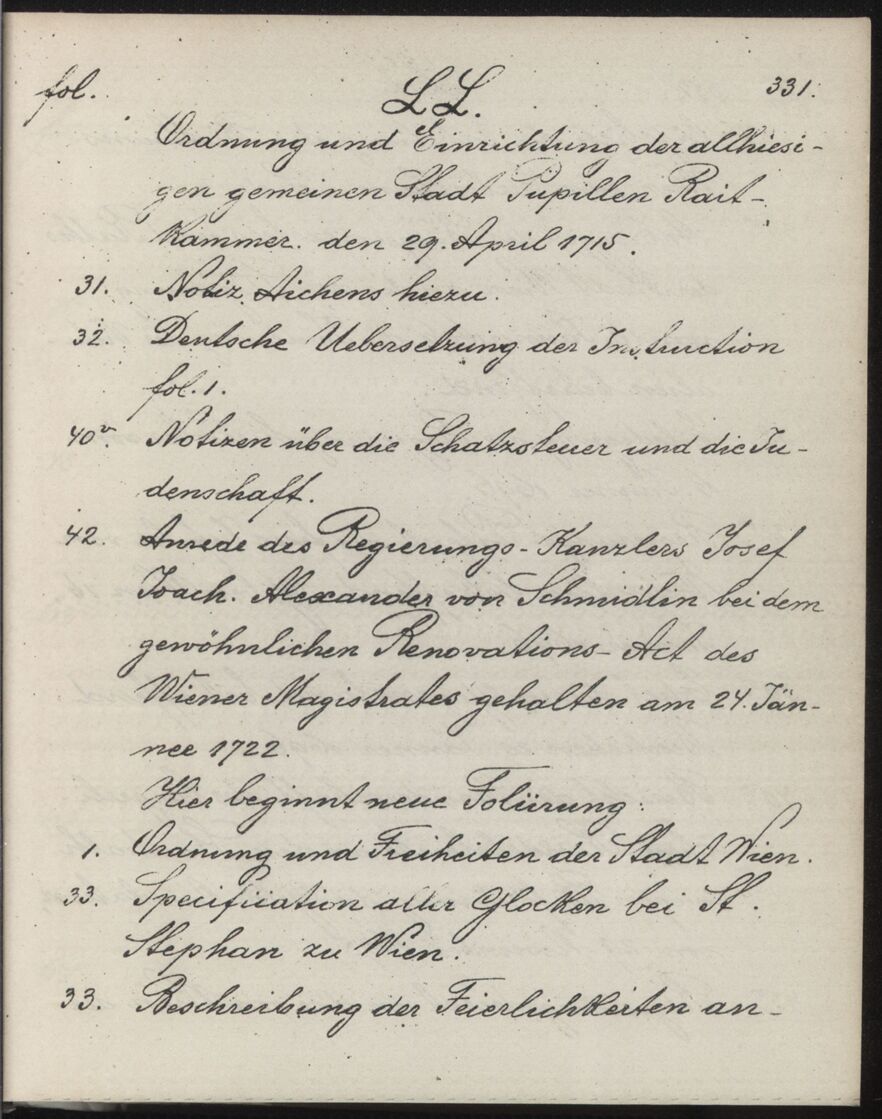 fol. LL. 331.
Ordnung und Einrichtung der allhiesi-
gen gemeinen Stadt Pupillen Rait-
Kammer. den 29. April 1715.
31. Notiz Aichens hiezu.
32. Deutsche Uebersetzung der Instruction
fol. 1.
40v. Notizen über die Schatzsteuer und die Ju-
denschaft.
42. Anrede des Regierungs-Kanzlers Josef
Joach. Alexander von Schmidlin bei dem
gewöhnlichen Renovations-Act des
Wiener Magistrates gehalten am 24. Jän-
nee 1722.
Hier beginnt neue Folürung:
1. Ordnung und Freiheiten der Stadt Wien.
33. Specification aller Glocken bei St.
Stephan zu Wien.
33. Beschreibung der Feierlichkeiten an-